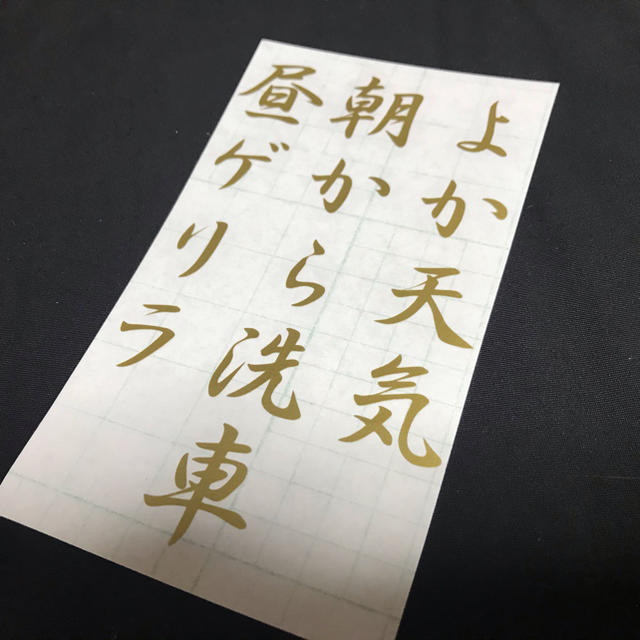 よか天気
朝から洗車
昼ゲリラ